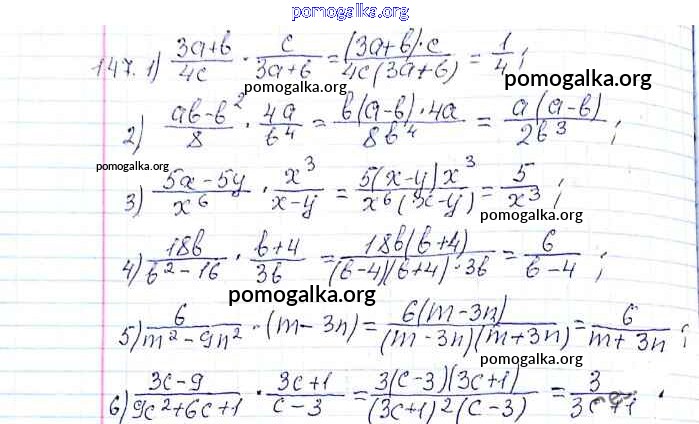 pomogalka.org
147. 1) (3a+b)/(4c) · c/(3a+b) = ((3a+b)·c)/(4c(3a+b)) = 1/4;
pomogalka.org
2) (ab-b²)/8 · 4a/b⁴ = (b(a-b)·4a)/(8b⁴) = (a(a-b))/(2b³);
pomogalka.org
3) (5x-5y)/x⁶ · x³/(x-y) = (5(x-y)x³)/(x⁶(x-y)) = 5/x³;
pomogalka.org
4) 18b/(b²-16) · (b+4)/(3b) = (18b(b+4))/((b-4)(b+4)·3b) = 6/(b-4);
pomogalka.org
5) 6/(m²-9n²) · (m-3n) = (6(m-3n))/((m-3n)(m+3n)) = 6/(m+3n);
pomogalka.org
6) (3c-9)/(9c²+6c+1) · (3c+1)/(c-3) = (3(c-3)(3c+1))/((3c+1)²(c-3)) = 3/(3c+1).